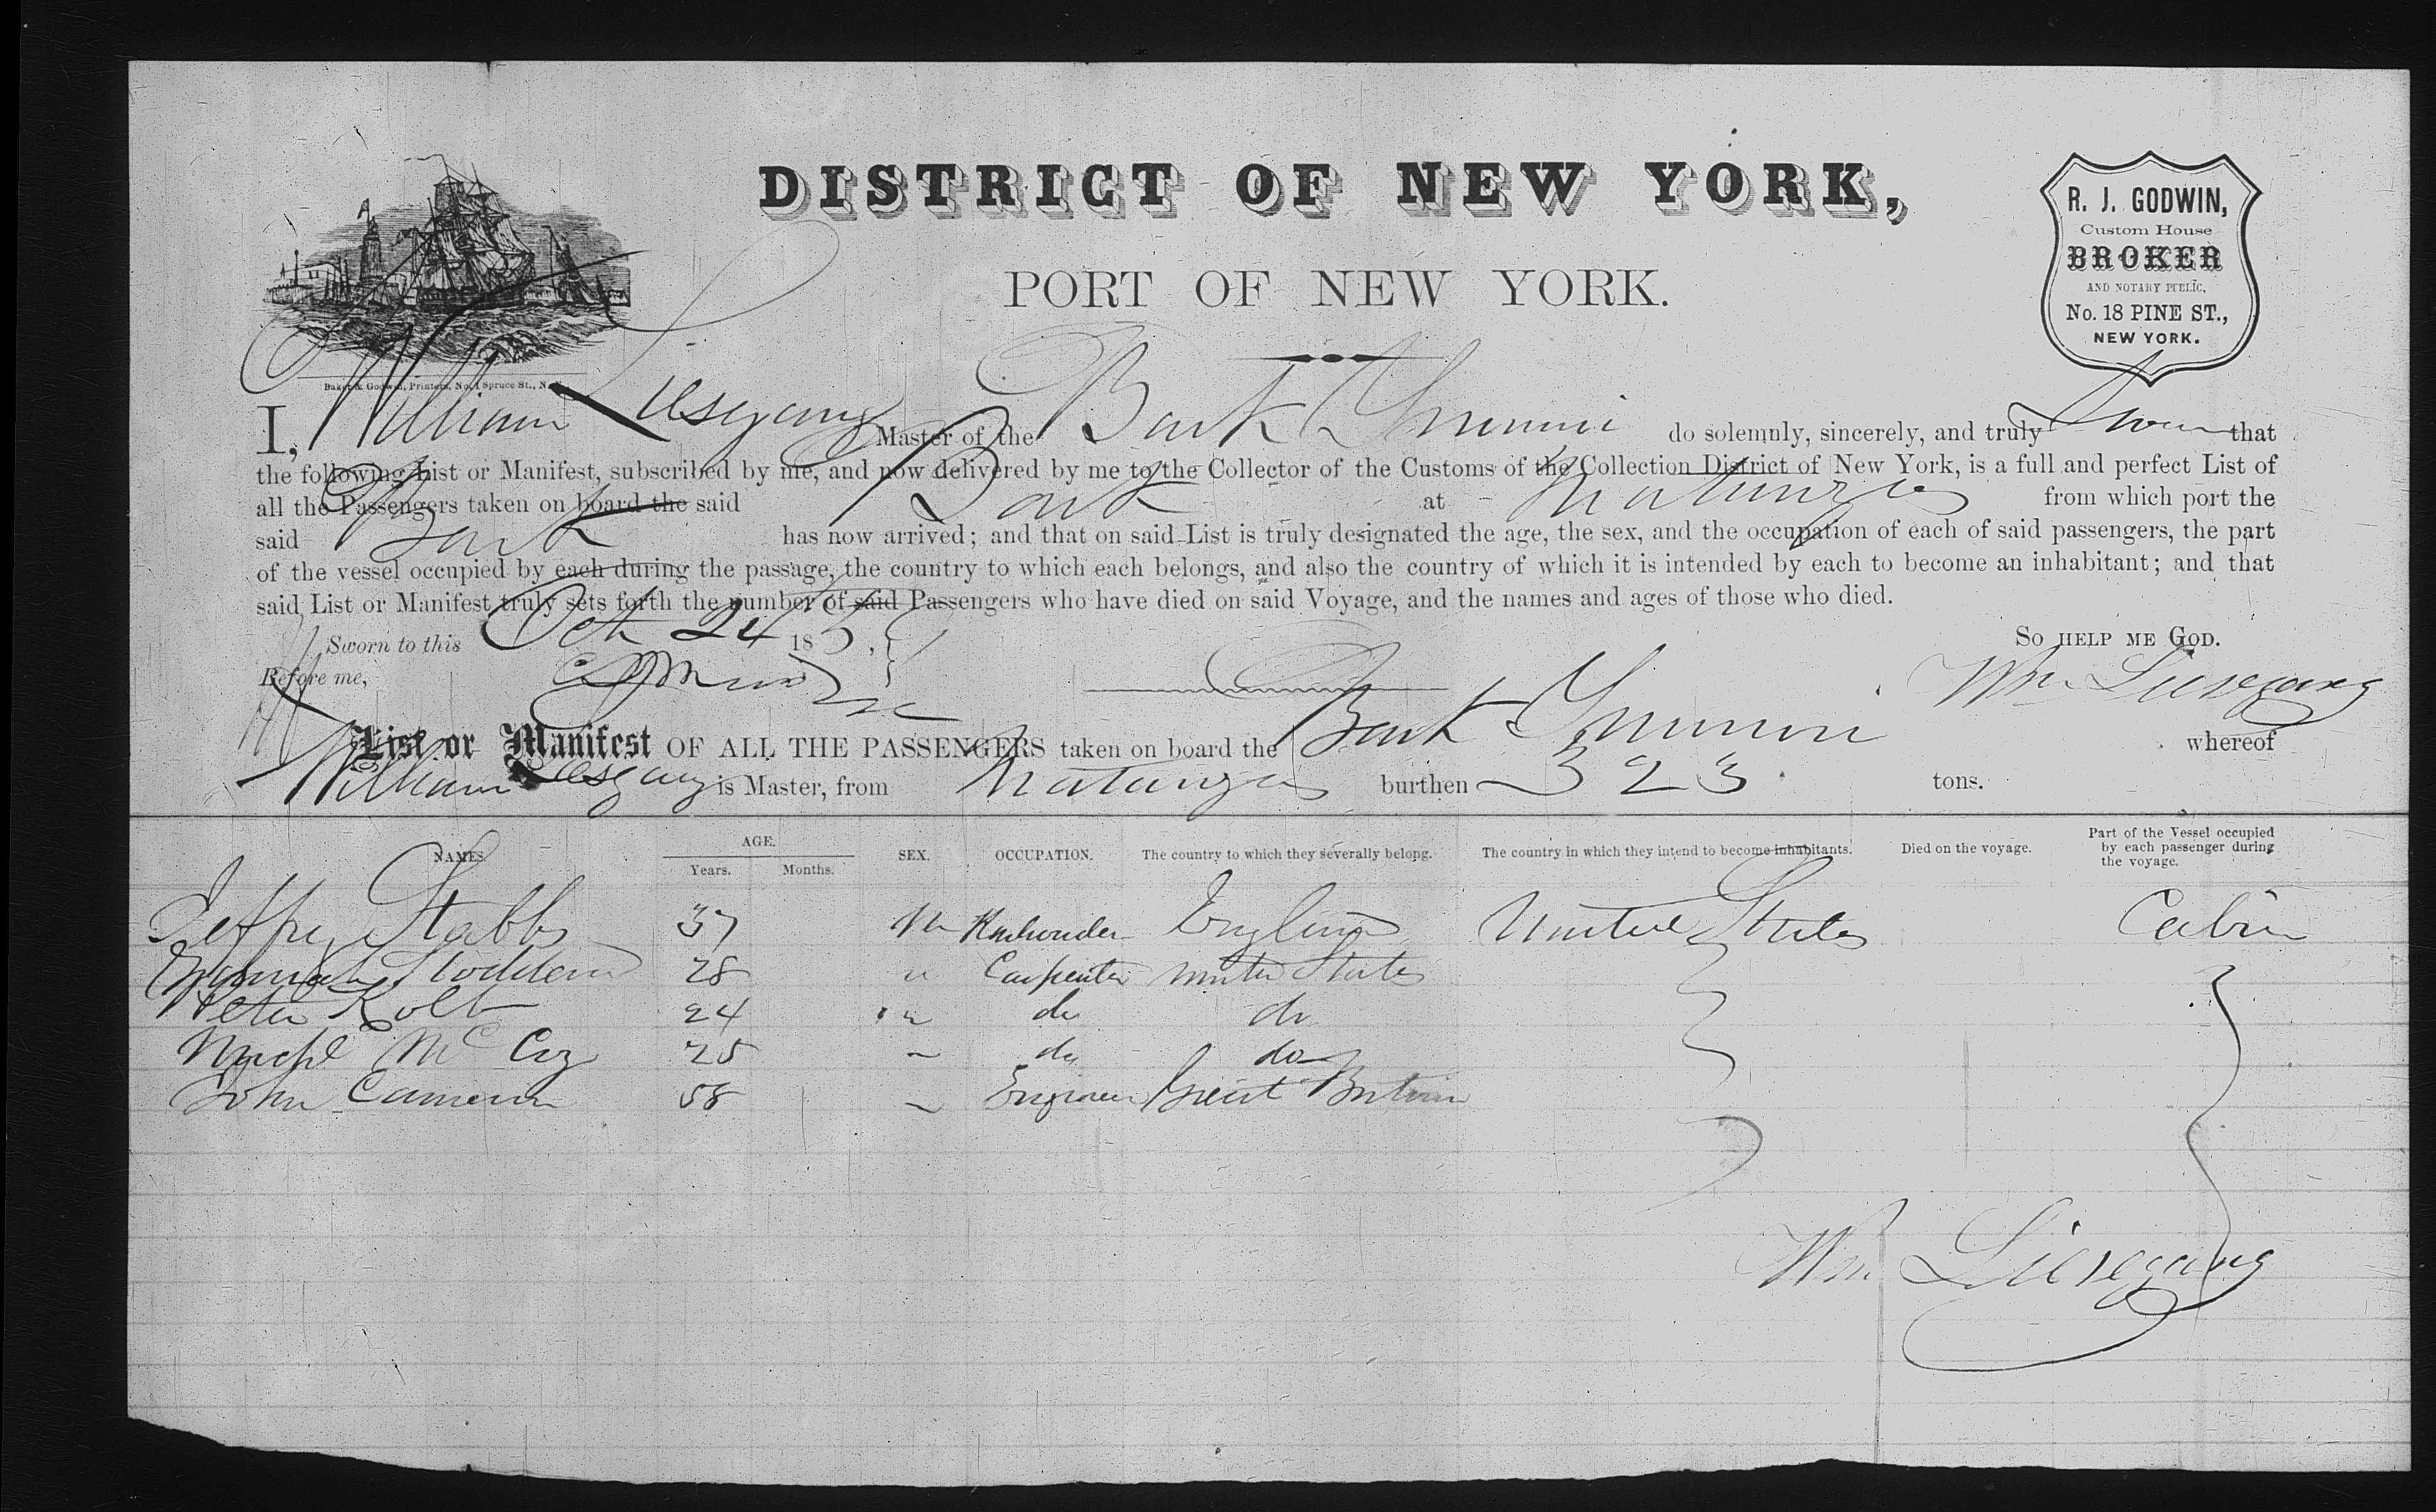 DISTRICT OF NEW YORK,
PORT OF NEW YORK.
R. J. GODWIN,
Custom House
BROKER
AND NOTARY PUBLIC,
No. 18 PINE ST.,
NEW YORK.
Baker & Godwin, Printers, No. 1 Spruce St., N.Y.
I, William Liesegang Master of the Bark do solemnly, sincerely, and truly Swear that
the following List or Manifest, subscribed by me, and now delivered by me to the Collector of the Customs of the Collection District of New York, is a full and perfect List of
all the Passengers taken on board the said Bark at Matanzas from which port the
said Bark has now arrived; and that on said List is truly designated the age, the sex, and the occupation of each of said passengers, the part
of the vessel occupied by each during the passage, the country to which each belongs, and also the country of which it is intended by each to become an inhabitant; and that
said List or Manifest truly sets forth the number of said Passengers who have died on said Voyage, and the names and ages of those who died.
Sworn to this Oct 24 18 SO HELP ME GOD.
Before me, Wm. Liesegang
List or Manifest OF ALL THE PASSENGERS taken on board the Bark whereof
William Liesegang is Master, from Matanzas burthen 323 tons.
NAMES. AGE. Years. Months. SEX. OCCUPATION. The country to which they severally belong. The country in which they intend to become inhabitants. Died on the voyage. Part of the Vessel occupied by each passenger during the voyage.
Jeffrey Stabbs 37 M England United States Cabin
Stoddard 28 " Carpenter United States
Peter Kolb 24 " do do
Michl McCoy 25 " do do
John Cameron 58 " Engineer Great Britain
Wm. Liesegang